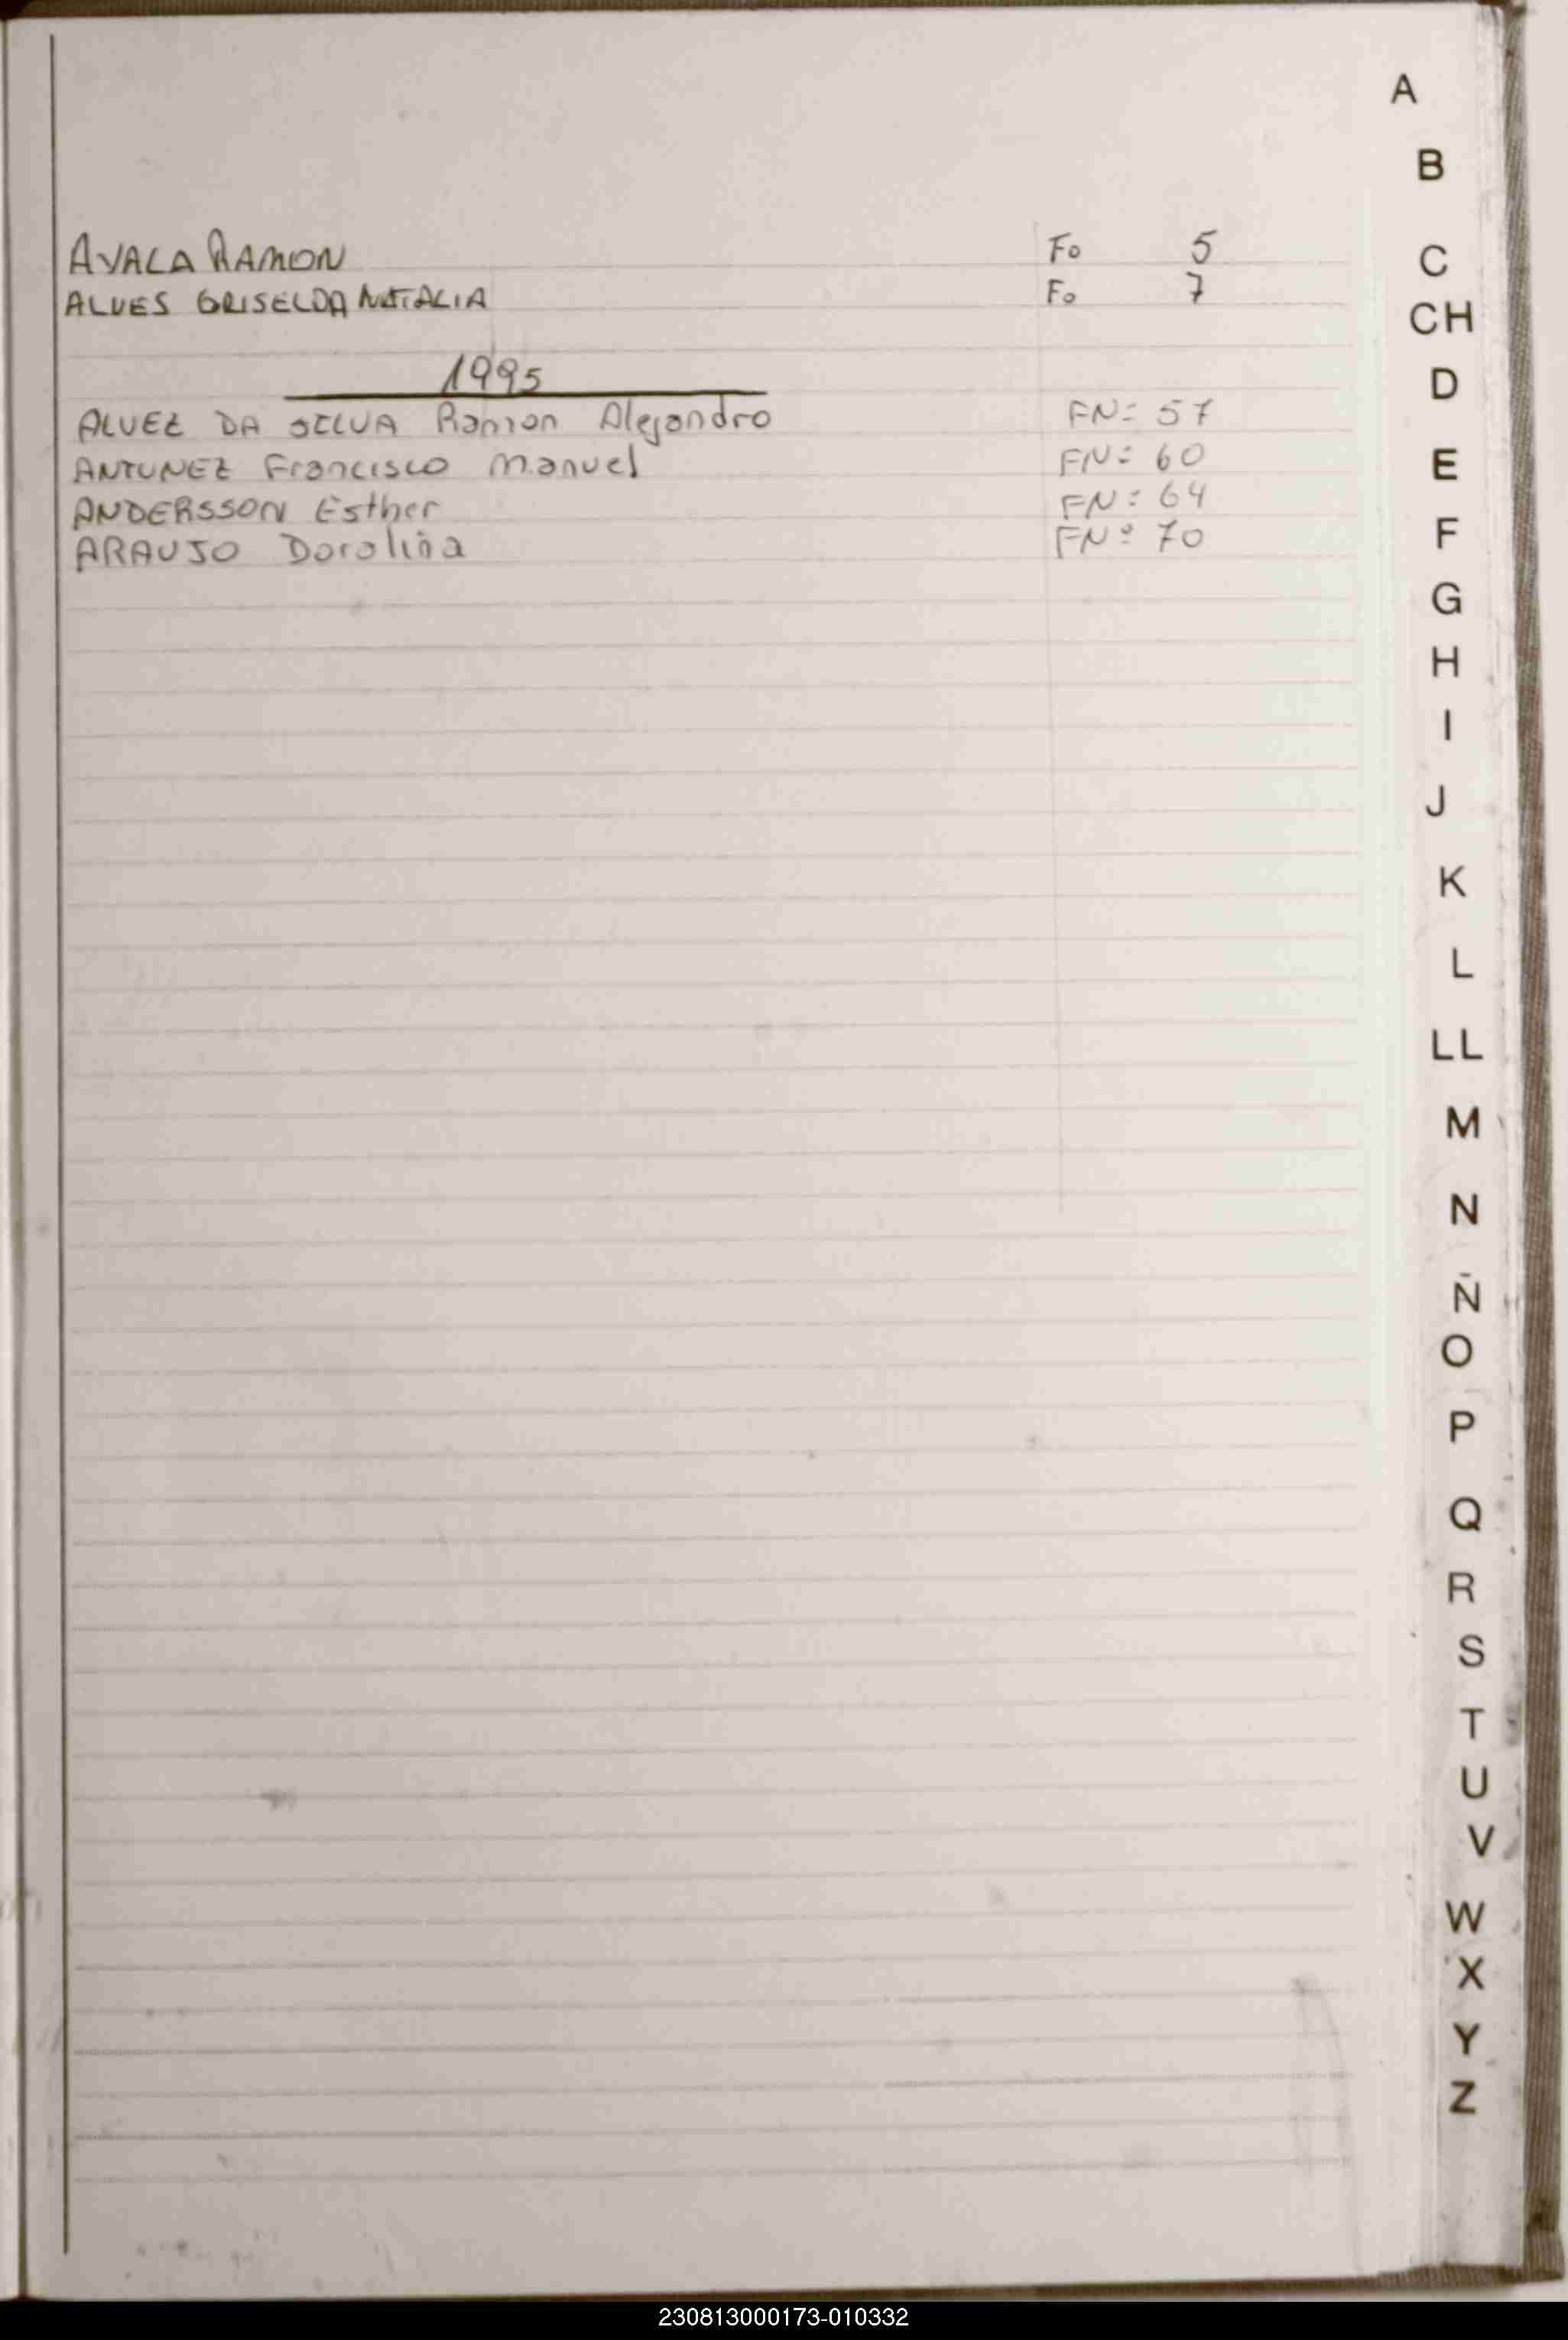 A
B
AYALA RAMON Fo 5
C
ALVES GRISELDA NATALIA Fo 7
CH
1995
D
ALVEZ DA SILVA Ramon Alejandro FNº 57
ANTUNEZ Francisco Manuel FNº 60
E
ANDERSSON Esther FNº 64
ARAUJO Doralina FNº 70
F
G
H
I
J
K
L
LL
M
N
Ñ
O
P
Q
R
S
T
U
V
W
X
Y
Z
230813000173-010332